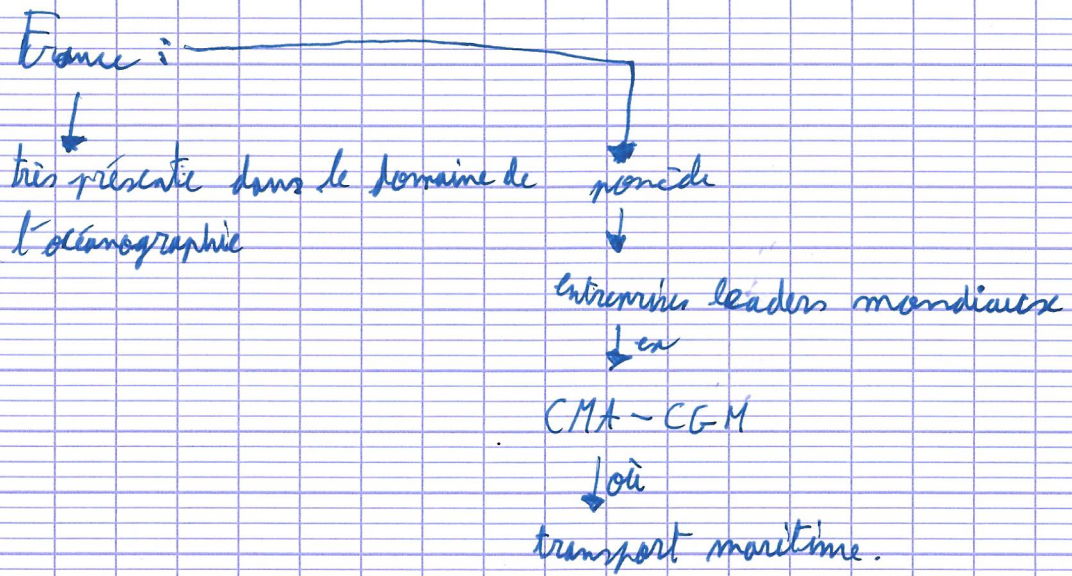 France :
très présente dans le domaine de
l'océanographie
possède
entreprises leaders mondiaux
ex
CMA - CGM
où
transport maritime.